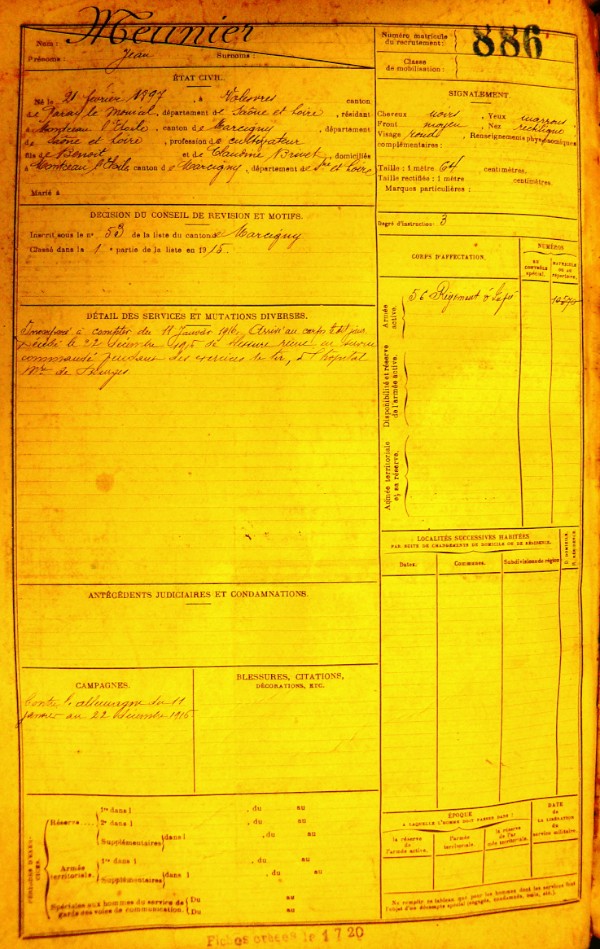 Nom : Meunier
Prénoms : Jean Surnoms :
Numéro matricule du recrutement : 886
Classe de mobilisation :
ÉTAT CIVIL.
Né le 21 février 1897, à Volesvres canton
de Paray le Monial, département de Saône et Loire, résidant
à Montceau l'Etoile, canton de Marcigny, département
de Saône et Loire, profession de cultivateur
fils de Benoit et de Claudine Brivet, domiciliés
à Montceau l'Etoile canton de Marcigny, département de Sne et Loire
Marié à
SIGNALEMENT.
Cheveux noirs, Yeux marrons
Front moyen, Nez rectiligne
Visage ronds Renseignements physionomiques
complémentaires :
Taille : 1 mètre 64 centimètres.
Taille rectifiée : 1 mètre centimètres.
Marques particulières :
Degré d'instruction : 3
DÉCISION DU CONSEIL DE REVISION ET MOTIFS.
Inscrit sous le n° 53 de la liste du canton de Marcigny
Classé dans la 1e partie de la liste en 1915.
CORPS D'AFFECTATION.
NUMÉROS
au contrôle spécial.
matricule ou au répertoire.
Armée active.
56 Régiment d'Infie
Disponibilité et réserve de l'armée active.
Armée territoriale et sa réserve.
DÉTAIL DES SERVICES ET MUTATIONS DIVERSES.
Incorporé à compter du 11 Janvier 1916, Arrivé au corps le dit jour
Décédé le 22 Décembre de blessure reçue en service
commandé pendant des exercices de tir, à l'hôpital
de Bourges
LOCALITÉS SUCCESSIVES HABITÉES
PAR SUITE DE CHANGEMENTS DE DOMICILE OU DE RÉSIDENCE.
Dates. Communes. Subdivisions de région
D. DOMICILE. R. RÉSIDENCE
ANTÉCÉDENTS JUDICIAIRES ET CONDAMNATIONS.
CAMPAGNES.
Contre l'allemagne du 11
janvier au 22 décembre 1916
BLESSURES, CITATIONS,
DÉCORATIONS, ETC.
PÉRIODES D'EXERCICES.
Réserve 1re dans l , du au
2e dans l , du au
Supplémentaires dans l , du au
Armée territoriale. 1re dans l , du au
Supplémentaires dans l , du au
Spéciales aux hommes du service de garde des voies de communication. Du au
Du au
ÉPOQUE
À LAQUELLE L'HOMME DOIT PASSER DANS :
la réserve de l'armée active.
l'armée territoriale.
la réserve de l'armée territoriale.
DATE
de
LA LIBÉRATION
du
service militaire.
Ne remplir ce tableau que pour les hommes dont les services font
l'objet d'un décompte spécial (engagés, condamnés, omis, etc.).
Fiches créées le 1720